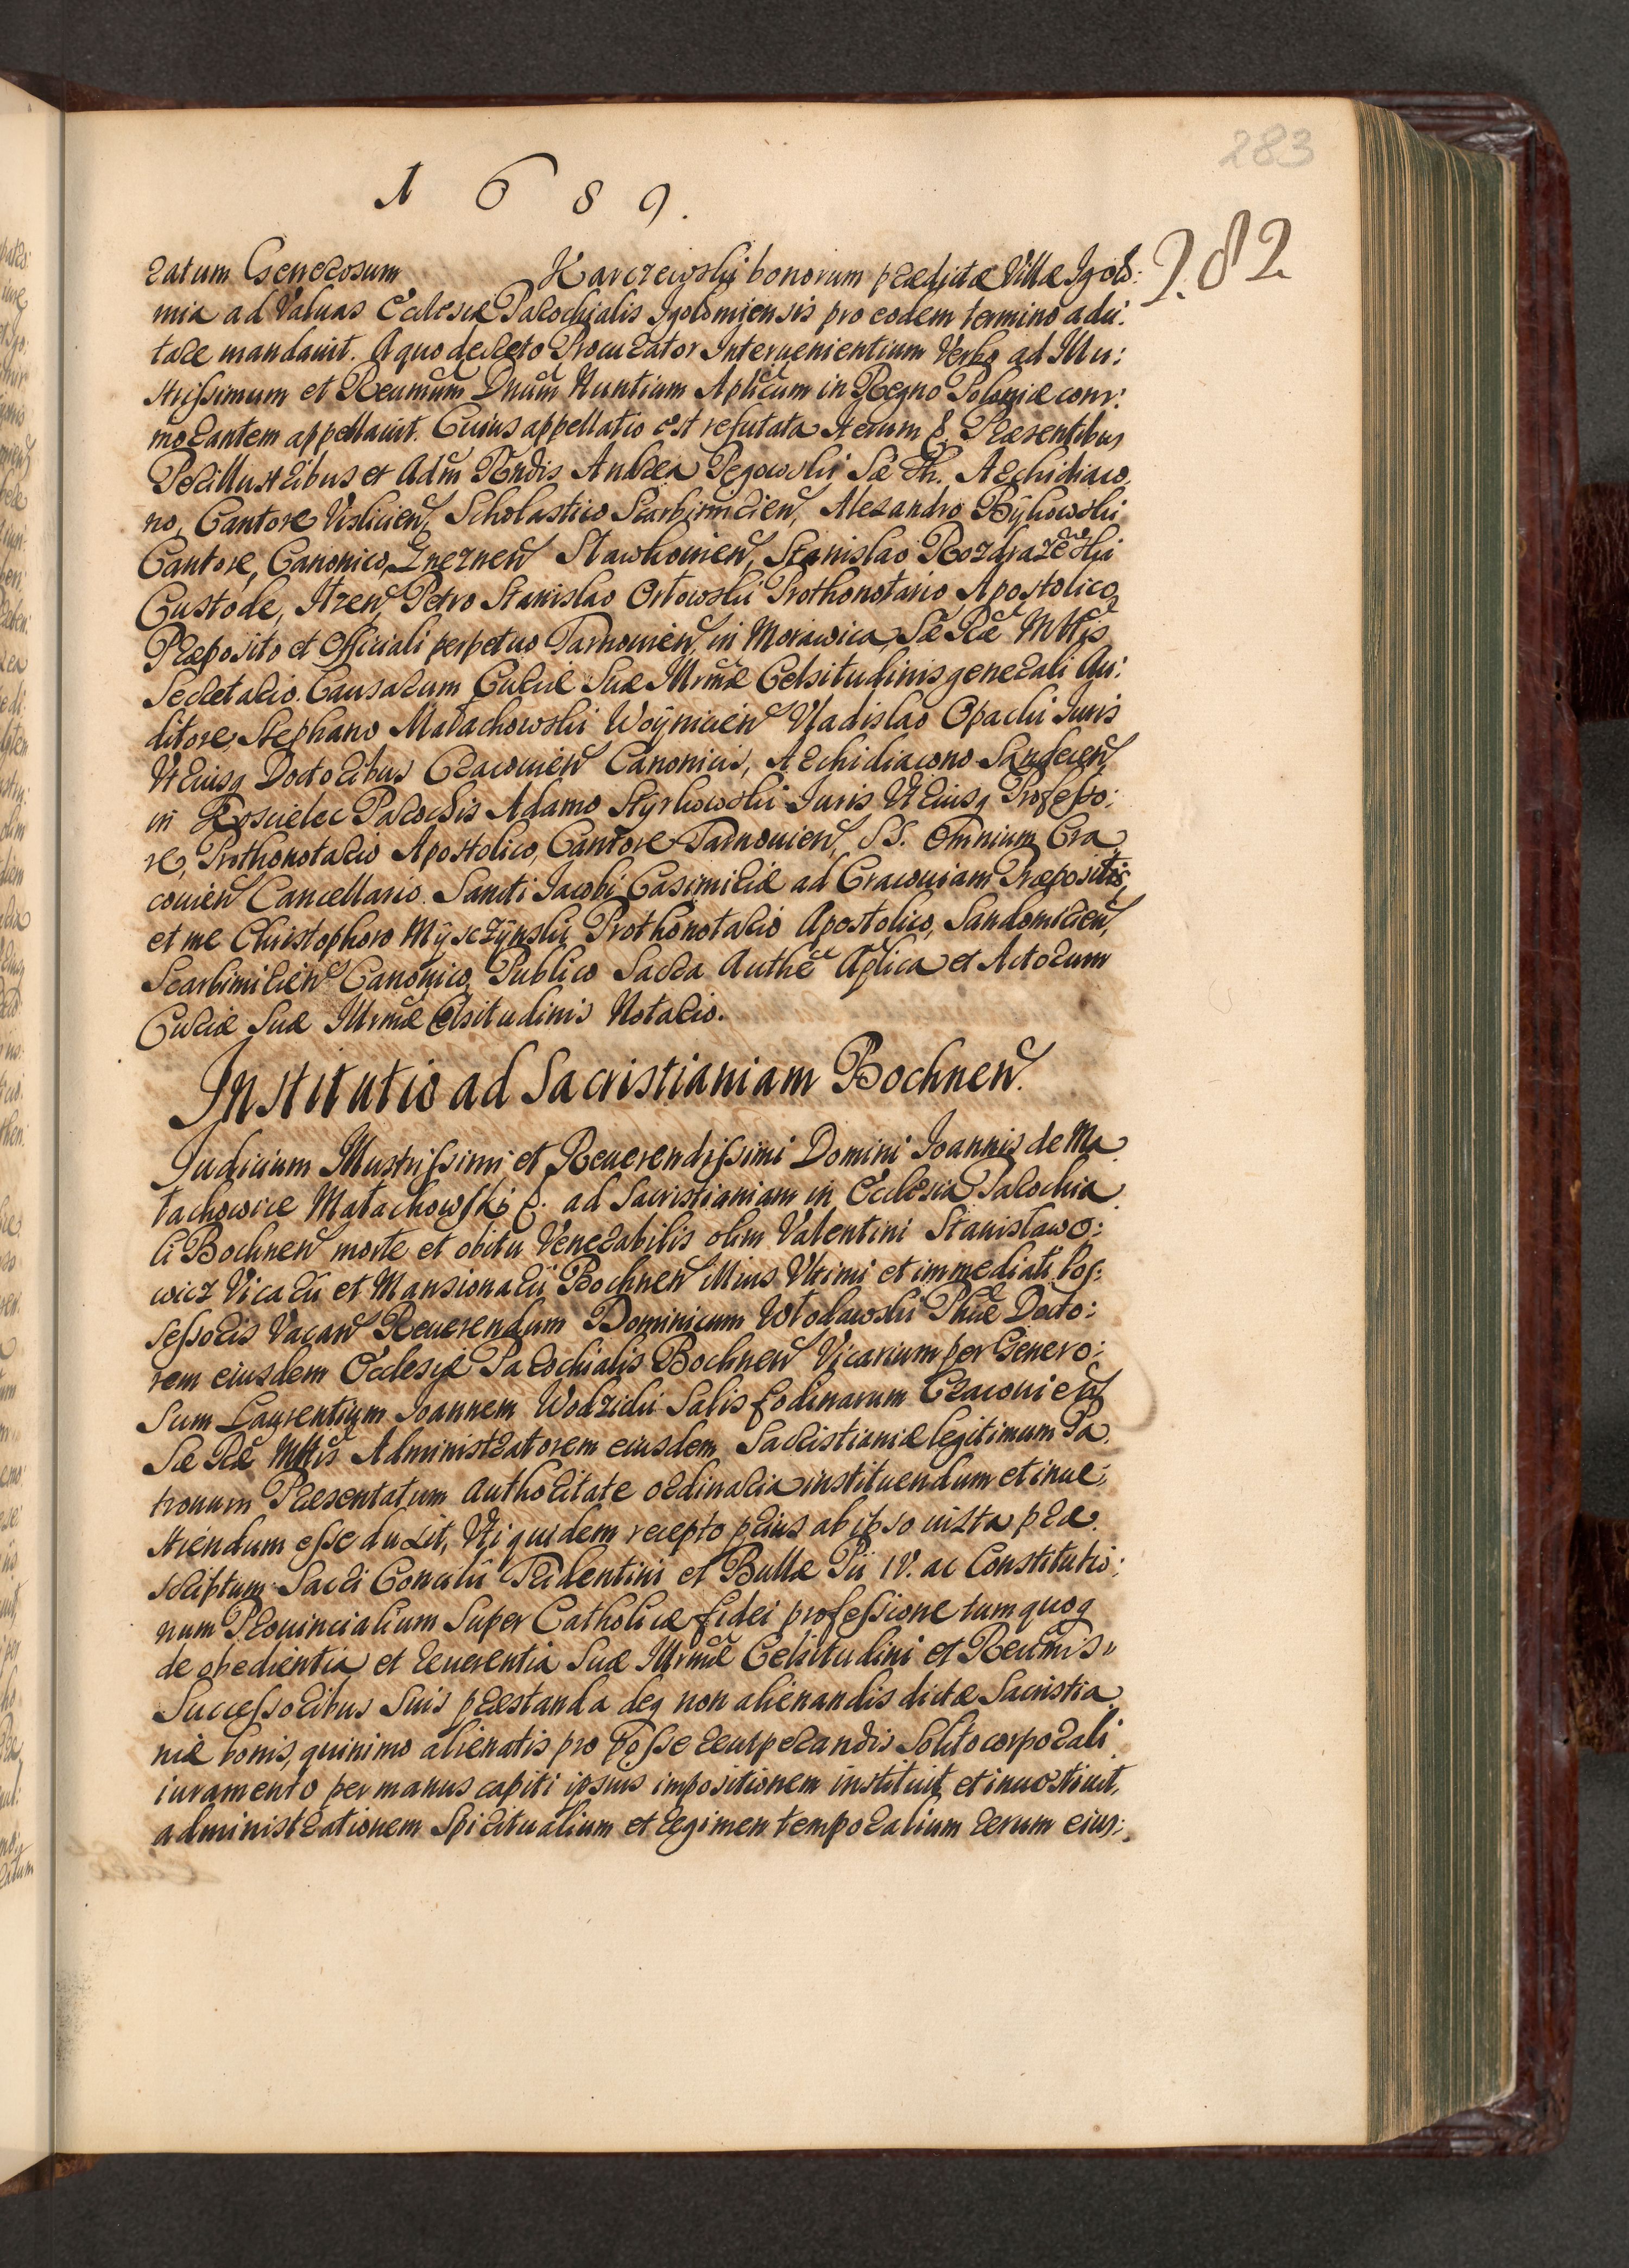 283
1689.
282
ratum Generosum Karczewski bonorum praedictae Villae Igolo:
mia ad Valuas Ecclesiae Parochialis Igolomiensis pro eodem termino adci:
tare mandauit. A quo decreto Procurator Interuenientium Verbo ad Illu:
strissimum et Reumum Dnum Nuntium Aplicum in Regno Poloniae com:
morantem appellauit. Cuius appellatio est refutata iterum &. Praesentibus
Perillustribus et Adm Rndis Andrea Pegowski Sae Th. Archidiaco.
no, Cantore Visliceñ, Scholastico Scarbimirieñ, Alexandro Bÿkowski
Cantore, Canonico Gnezneñ Slawkouieñ, Stanislao Rozdrazewski
Custode, Petro Stanislao Orłowski Prothonotario Apostolico
Praeposito et Officiali perpetuo Tarnouieñ, in Morawica, Sae Rae Mttis
Secretario. Causarum Curiae Suae Illrmae Celsitudinis generali Au:
ditore, Stephano Małachowski Woÿnicieñ Vladislao Opacki Iuris
Vtriusq Doctoribus Cracouieñ Canonicis, Archidiacono Sandecieñ
in Koscielec Parochis Adamo Stÿrkowski Iuris Vtriusq Professo:
re, Prothonotario Apostolico, Cantore Tarnouieñ, SS. Omnium Cra
couieñ Cancellario. Sancti Iacobi Casimiriae ad Cracouiam Praepositis,
et me Christophoro Mÿsczÿnski Prothonotario Apostolico, Sandomirieñ,
Scarbimirieñ Canonico, Publico Sacra Authe Aplica et Actorum
Curiae Suae Illrmae Celsitudinis Notario.
Institutio ad Sacristianiam Bochneñ.
Iudicium Illustrissimi et Reuerendissimi Domini Ioannis de Ma
łachowice Małachowski &. ad Sacristianiam in Ecclesia Parochia
li Bochneñ morte et obitu Venerabilis olim Valentini Stanisławo:
wicz Vicarii et Mansionarii Bochneñ illius Vltimi et immediati Pos:
sessoris Vacañ Reuerendum Dominicum Włodawski Phiae Docto:
rem eiusdem Ecclesiae Parochialis Bochneñ Vicarium per Genero:
sum Laurentium Ioannem Wodzicki Salis fodinarum Cracouieñ
Sae Rae Mttis Administratorem eiusdem Sacristianiae legitimum Pa
tronum Praesentatum Authoritate ordinaria instituendum et inue:
stiendum esse duxit, Vti quidem recepto prius ab ipso iuxta prae
scriptum Sacri Concilii Tridentini et Bullae Pii IV. ac Constitutio:
num Prouincialium Super Catholicae fidei professione tum quoq
de obedientia et reuerentia Suae Illrmae Celsitudini et Reumis
Successoribus Suis praestanda deq non alienandis dictae Sacristia
niae bonis, quinimo alienatis pro Posse recuperandis Solito corporali
iuramento per manus capiti ipsius impositionem instituit et inuestiuit,
administrationem Spiritualium et regimen temporalium rerum eius: